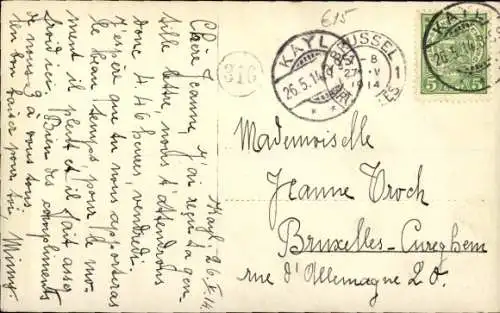 Kayl, 26.V.14
Chère Jeanne, J'ai reçu ta gen-
tille lettre, nous t'attendrons
donc 4.46 heures, vendredi.
J'espère que tu nous apporteras
le beau temps pour le mo-
ment il pleut et il fait assez
froid ici. Bien des compliments
de nous 9 à vous tous,
Un bon baiser pour toi, Mimy.
615
316
KAYL
26.5.14
BRUSSEL
8
27 V
1914
1
KAYL
26.5.14
5 5
Mademoiselle
Jeanne Troch
Bruxelles-Cureghem
rue d'Allemagne 20.